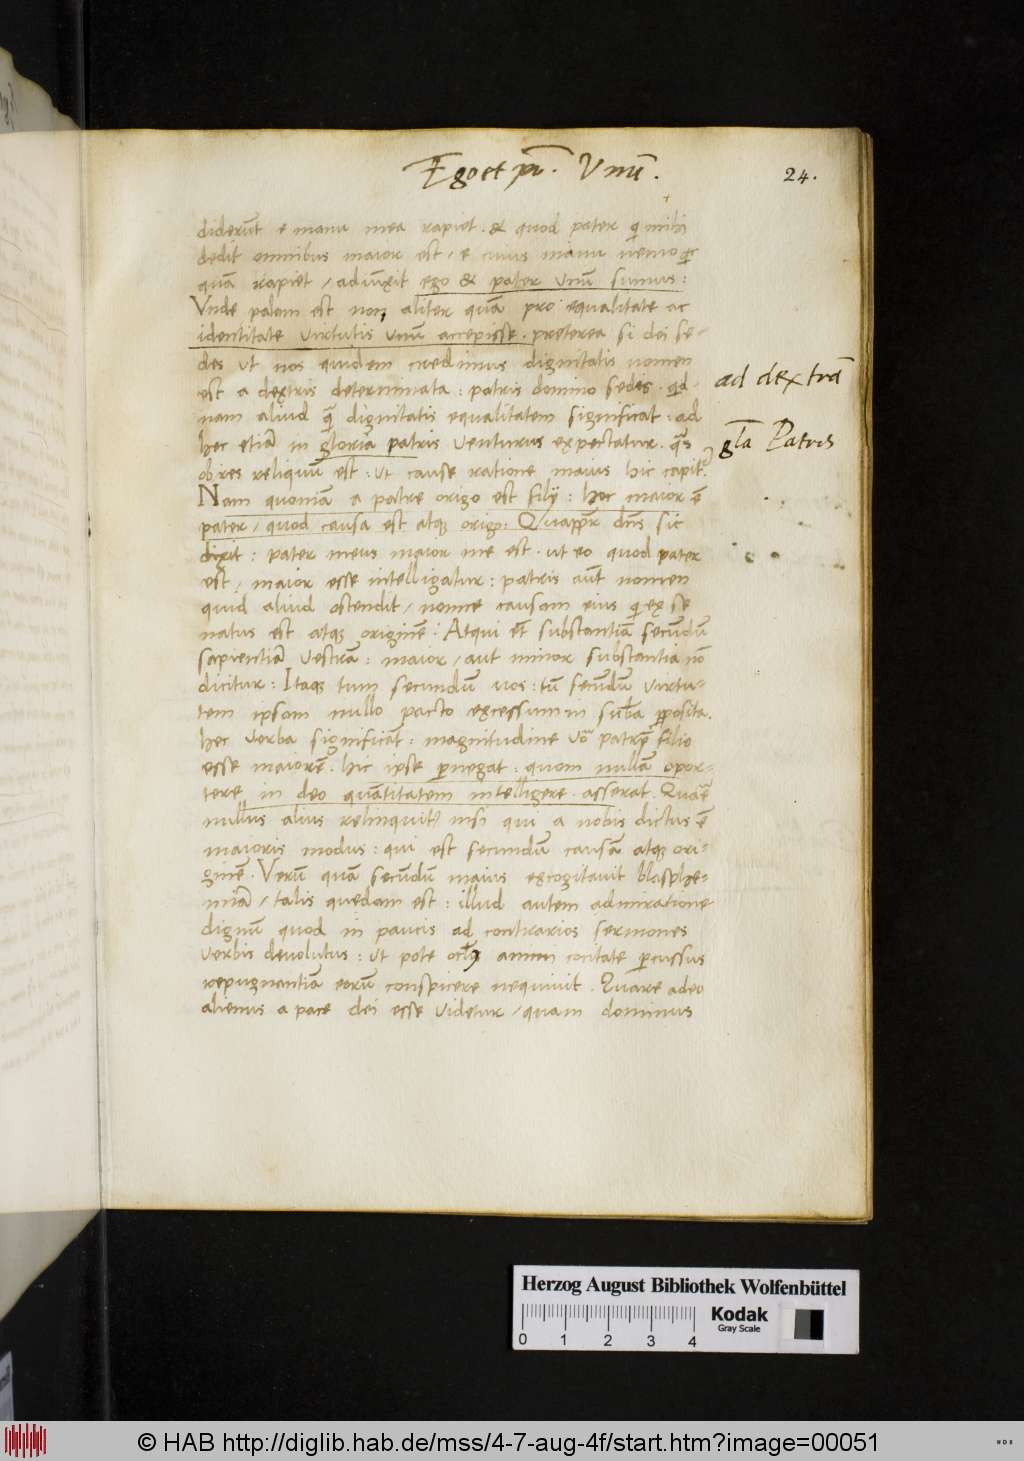 Ego et pr̄. Unū.
24.
diderūt e manu mea rapiet. & quod pater qi mihi
dedit omnibus maior est, e cuius manu nemo qic
quā rapiet, adiūxit ego & pater unū sumus:
Vnde palam est non aliter quā pro equalitate ac
identitate virtutis unū accepisse. preterea si dei se-
des ut nos quidem credimus dignitatis nomen
est a dextris determinata: patris domino sedes. qid-
nam aliud qā dignitatis equalitatem significat: ad
hec etiā in gloria patris venturus expectatur.
ob res reliquū est: ut cause ratione maius hic capit
Nam quoniā a patre origo est filij: hoc maior ē
pater, quod causa est atq origo: Quappr dn̄s sic
dixit: pater meus maior me est. ut eo quod pater
est, maior esse intelligatur: patris aūt nomen
quid aliud ostendit, nonne causam eius qi ex se
natus est atq originē: Atqui et̄ substantiā secūdū
sapientiā vestrā: maior, aut minor substantia nō
dicitur: Itaq tum secundū uos: tū secūdū virtu-
tem ipsam nullo pacto excessum in sub̄a pposita.
hec verba significāt: magnitudine vō patrē filio
esse maiorē. hic ipse pernegat: quom nullā opor-
tere in deo quātitatem intelligere. asserat. Quāē
nullus alius relinquit nisi qui a nobis dictus ē
maioris modus: qui est secundū causā atq ori-
ginē. Verū quā secūdū maius excogitavit blasphe-
miā, talis quedam est: illud autem admiratione
dignū quod in paucis ad contrarios sermones
verbis devolutus: ut pote animi cecitate percussus
repugnantiā eorū conspicere nequivit. Quare adeo
alienus a pace dei esse videtur, quam dominus
ad dextrā
gl̄a Patris
Herzog August Bibliothek Wolfenbüttel
Kodak
Gray Scale
0 1 2 3 4
© HAB http://diglib.hab.de/mss/4-7-aug-4f/start.htm?image=00051